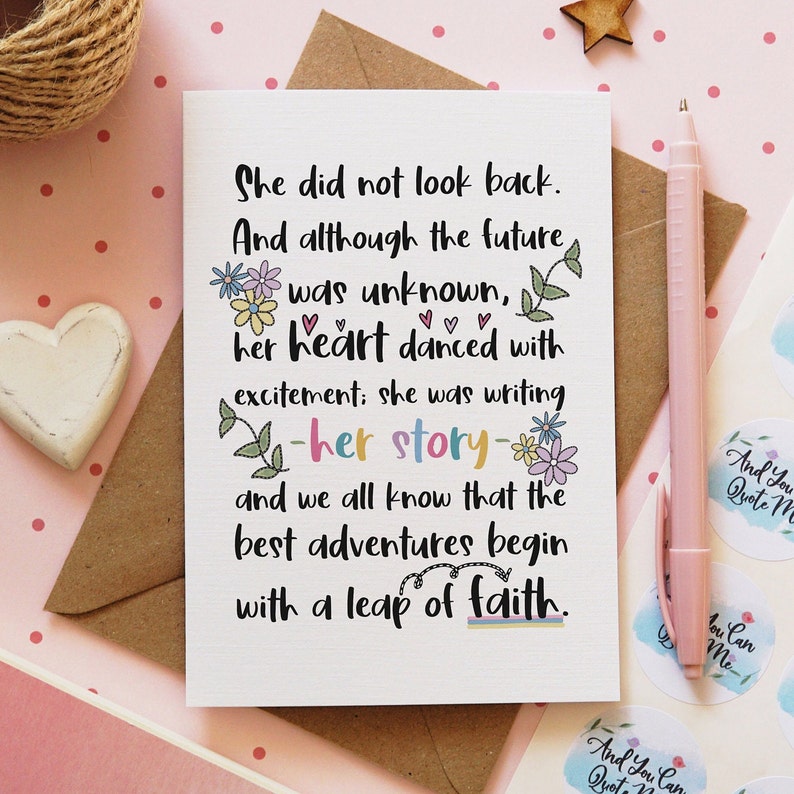 She did not look back.
And although the future
was unknown,
her heart danced with
excitement; she was writing
-her story-
and we all know that the
best adventures begin
with a leap of faith.
And You
Quote Me
And You Can
Me
And You Can
Quote Me